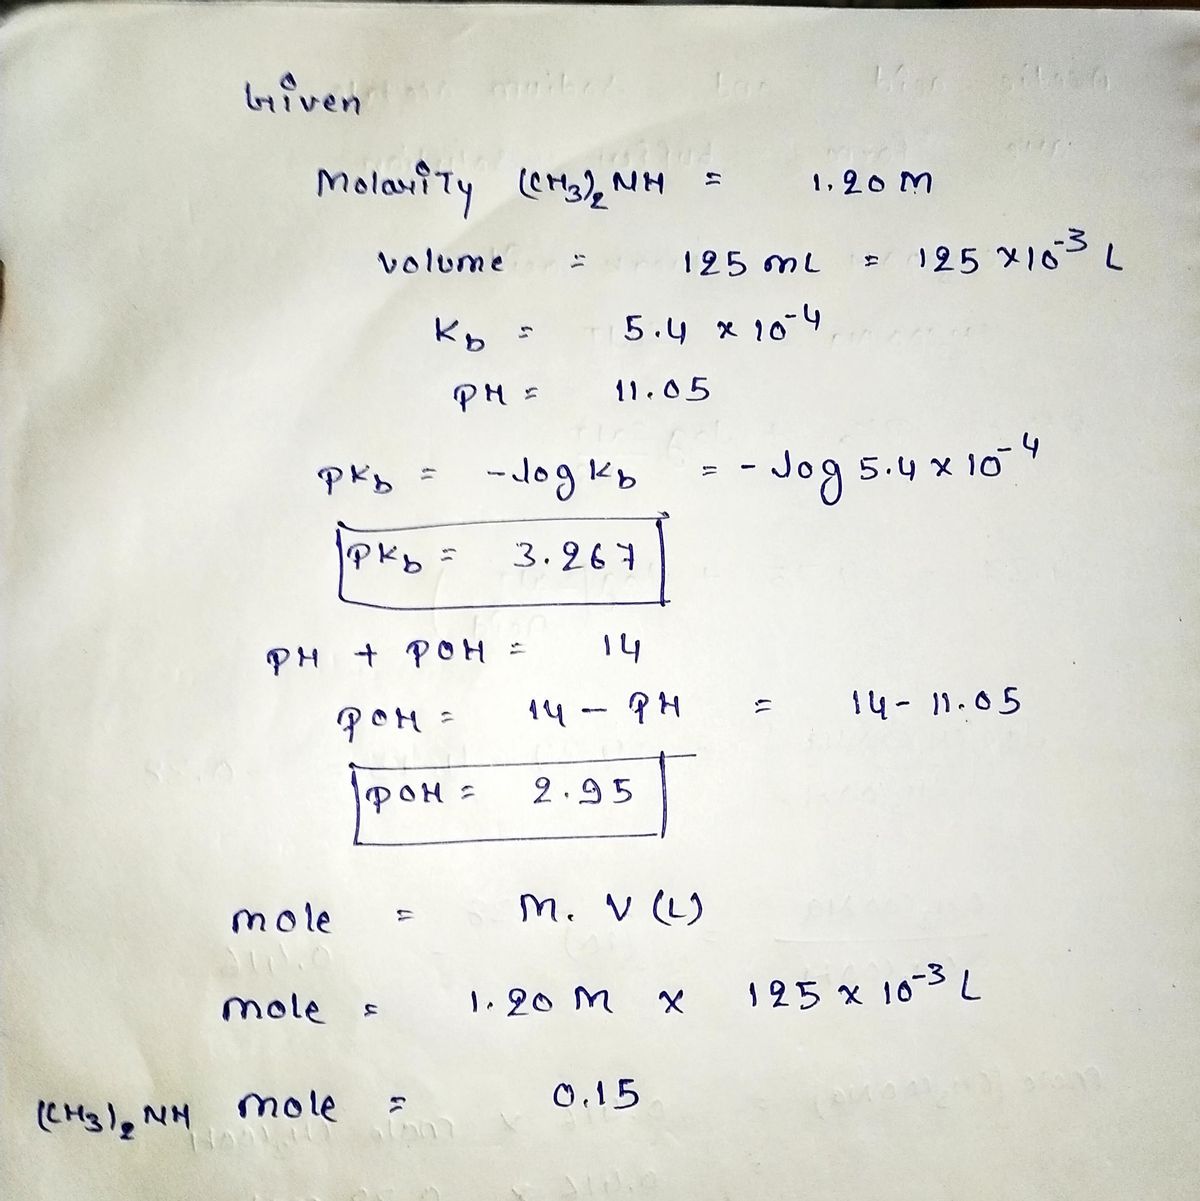 Given
Molarity (CH3)2 NH = 1.20 M
Volume = 125 mL = 125 × 10⁻³ L
Kb = 5.4 × 10⁻⁴
PH = 11.05
PKb = -log Kb = - log 5.4 × 10⁻⁴
PKb = 3.267
PH + POH = 14
POH = 14 - PH = 14 - 11.05
POH = 2.95
mole = M. V (L)
mole = 1.20 M × 125 × 10⁻³ L
(CH3)2 NH mole = 0.15